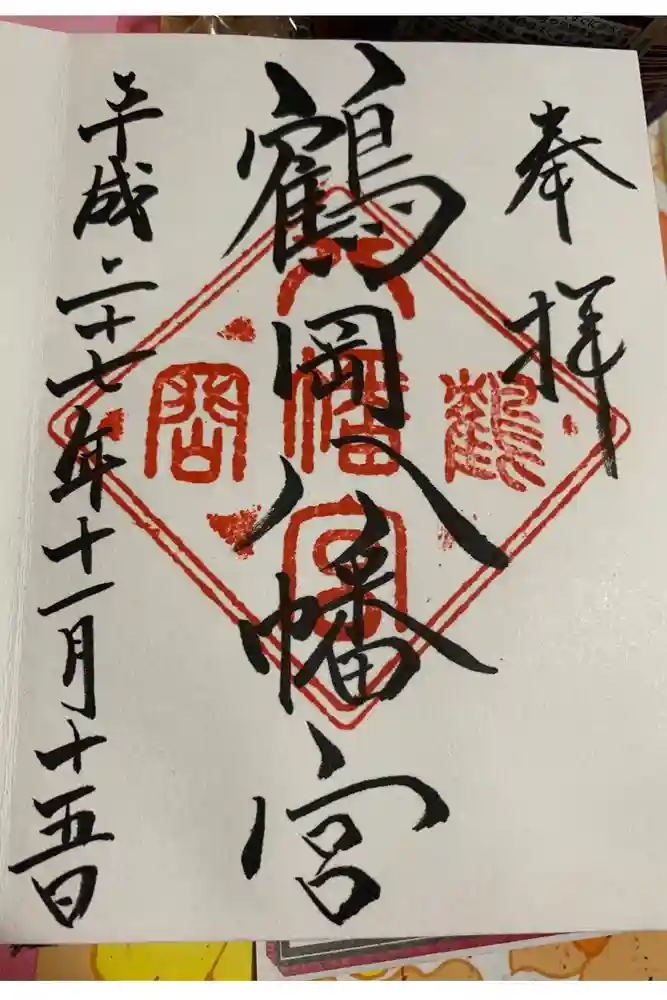 奉拝
鶴岡八幡宮
平成二十七年十一月十五日
鶴
岡
八幡宮